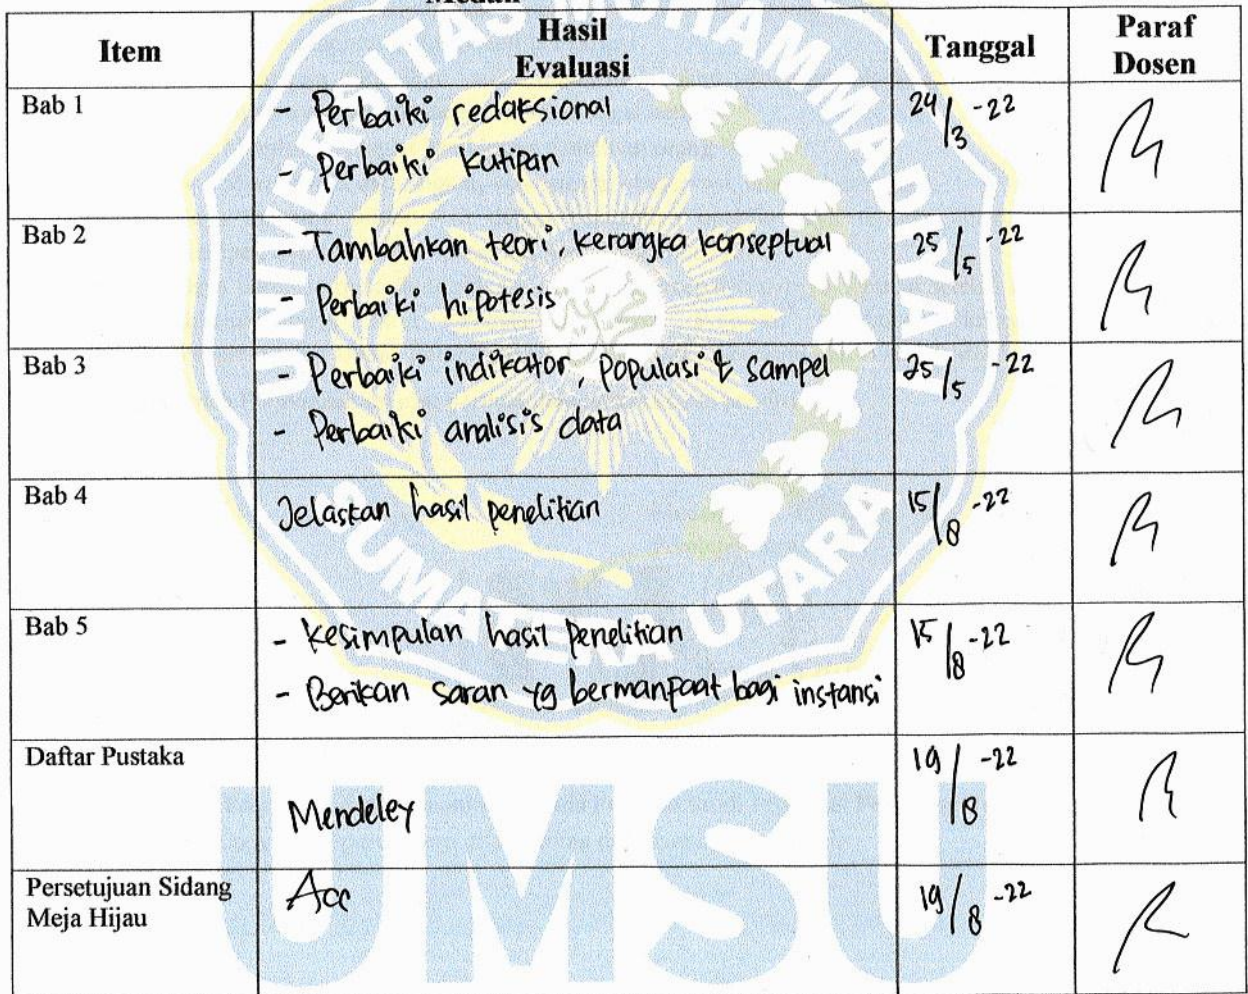 Medan
Item
Hasil
Evaluasi
Tanggal
Paraf
Dosen
Bab 1
- Perbaiki redaksional
- Perbaiki kutipan
24/3-22
Bab 2
- Tambahkan teori, kerangka konseptual
- Perbaiki hipotesis
25/5-22
Bab 3
- Perbaiki indikator, populasi & sampel
- Perbaiki analisis data
25/5-22
Bab 4
Jelaskan hasil penelitian
15/8-22
Bab 5
- Kesimpulan hasil penelitian
- Berikan saran yg bermanpaat bagi instansi
15/8-22
Daftar Pustaka
Mendeley
19/8-22
Persetujuan Sidang
Meja Hijau
Acc
19/8-22
UNIVERSITAS MUHAMMADIYAH
SUMATERA UTARA
UMSU